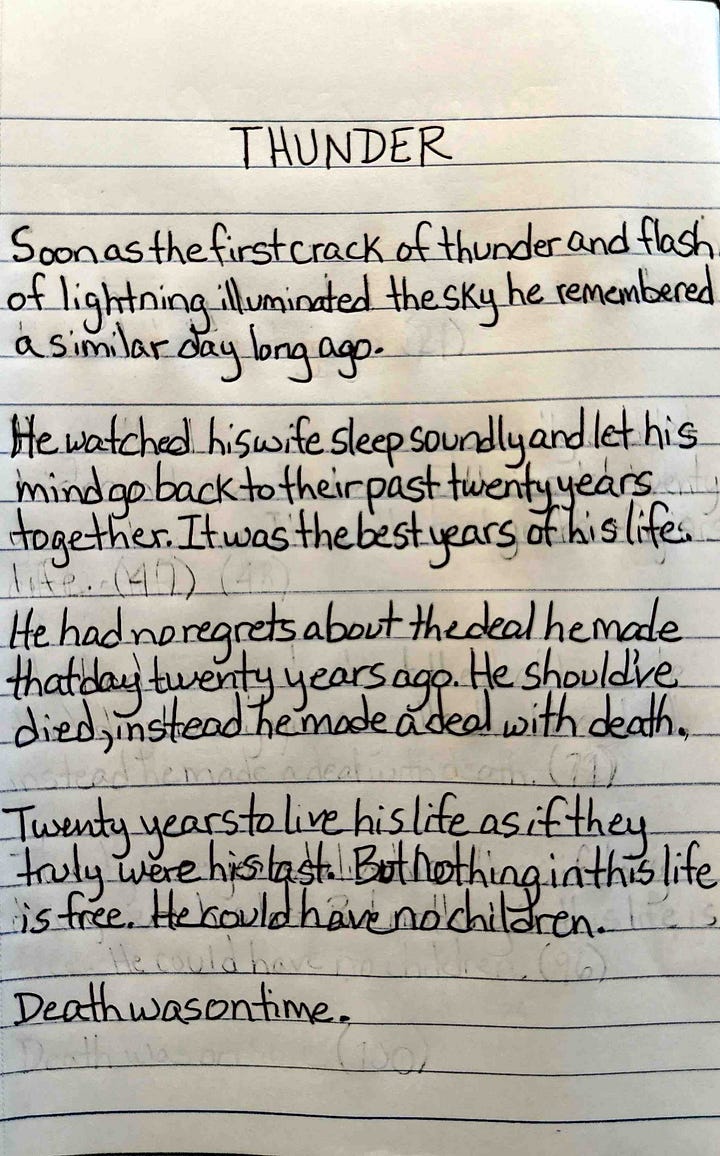 THUNDER
Soon as the first crack of thunder and flash
of lightning illuminated the sky he remembered
a similar day long ago.
He watched his wife sleep soundly and let his
mind go back to their past twenty years
together. It was the best years of his life.
life. (47)
He had no regrets about the deal he made
that day twenty years ago. He should've
died, instead he made a deal with death.
instead he made a deal with death. (79)
Twenty years to live his life as if they
truly were his last. But nothing in this life
is free. He could have no children.
He could have no children. (96)
Death was on time.
Death was on (100)